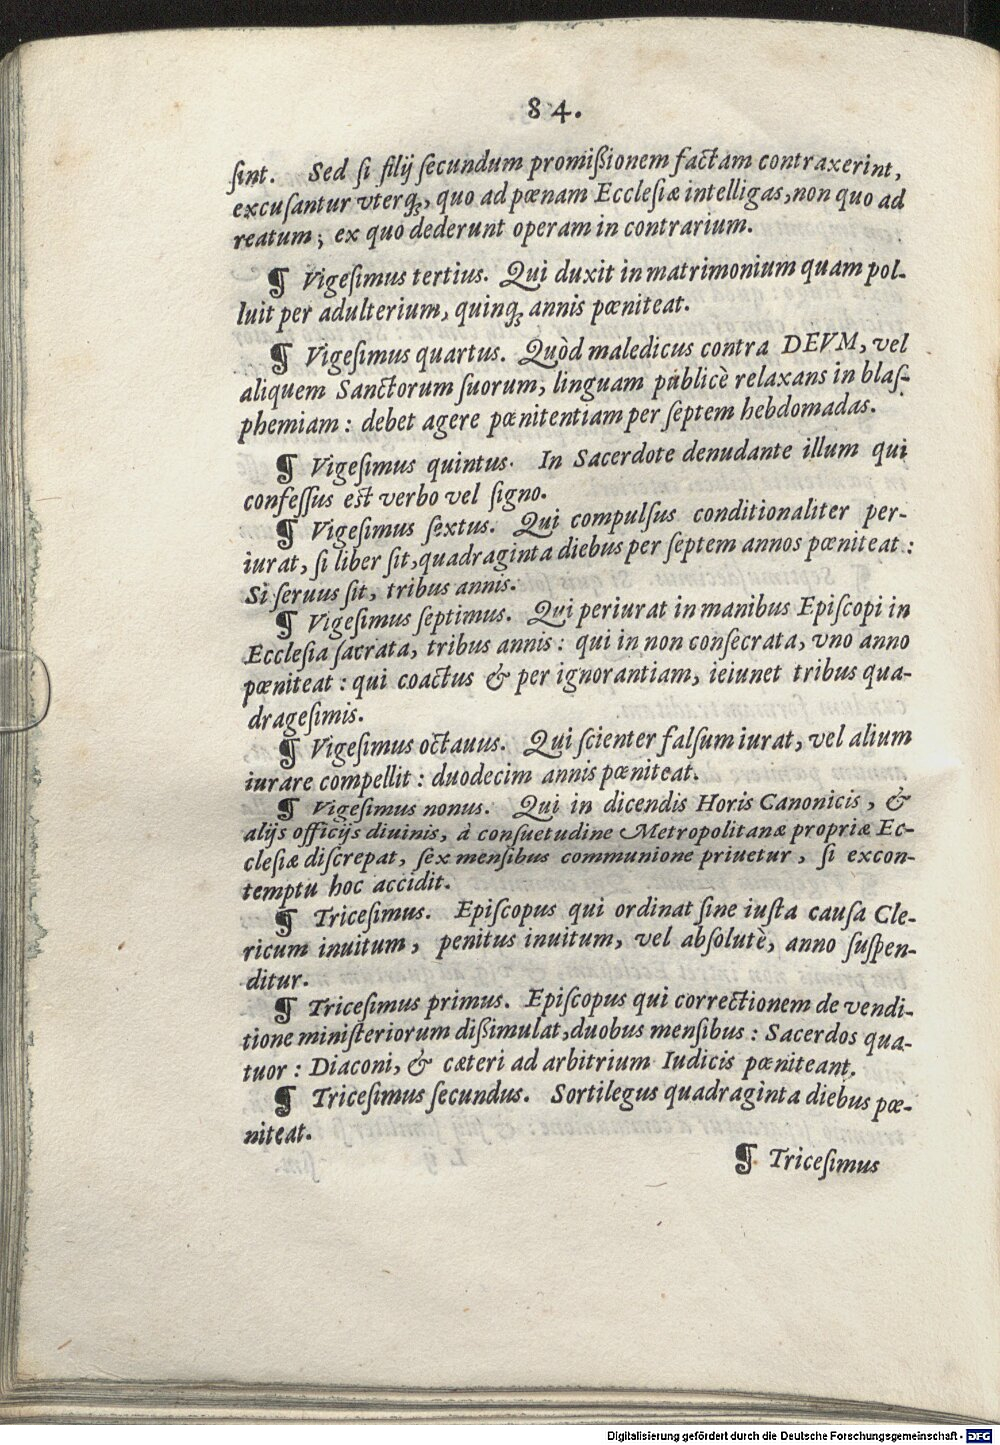 84.
ſint. Sed ſi filij ſecundum promißionem factam contraxerint,
excuſantur vterqꝫ, quo ad pœnam Eccleſiæ intelligas, non quo ad
reatum; ex quo dederunt operam in contrarium.
¶ Vigeſimus tertius. Qui duxit in matrimonium quam pol-
luit per adulterium, quinqꝫ annis pœniteat.
¶ Vigeſimus quartus. Quòd maledicus contra DEVM, vel
aliquem Sanctorum ſuorum, linguam publicè relaxans in blaſ-
phemiam: debet agere pœnitentiam per ſeptem hebdomadas.
¶ Vigeſimus quintus. In Sacerdote denudante illum qui
confeſſus est verbo vel ſigno.
¶ Vigeſimus ſextus. Qui compulſus conditionaliter per-
iurat, ſi liber ſit, quadraginta diebus per ſeptem annos pœniteat:
Si ſeruus ſit, tribus annis.
¶ Vigeſimus ſeptimus. Qui periurat in manibus Epiſcopi in
Eccleſia ſacrata, tribus annis: qui in non conſecrata, vno anno
pœniteat: qui coactus & per ignorantiam, ieiunet tribus qua-
drageſimis.
¶ Vigeſimus octauus. Qui ſcienter falſum iurat, vel alium
iurare compellit: duodecim annis pœniteat.
¶ Vigeſimus nonus. Qui in dicendis Horis Canonicis, &
alijs officijs diuinis, à conſuetudine Metropolitanæ propriæ Ec-
cleſiæ diſcrepat, ſex menſibus communione priuetur, ſi excon-
temptu hoc accidit.
¶ Triceſimus. Epiſcopus qui ordinat ſine iuſta cauſa Cle-
ricum inuitum, penitus inuitum, vel abſolutè, anno ſuſpen-
ditur.
¶ Triceſimus primus. Epiſcopus qui correctionem de vendi-
tione miniſteriorum dißimulat, duobus menſibus: Sacerdos qua-
tuor: Diaconi, & cæteri ad arbitrium Iudicis pœniteant.
¶ Triceſimus ſecundus. Sortilegus quadraginta diebus pœ-
niteat.
¶ Triceſimus
Digitalisierung gefördert durch die Deutsche Forschungsgemeinschaft - DFG